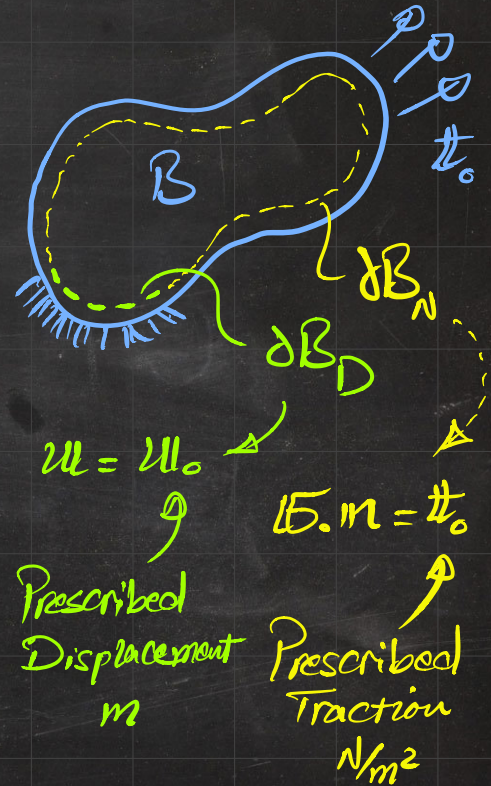 B
t₀
∂B_N
∂B_D
u = u₀
σ.n = t₀
Prescribed
Displacement
m
Prescribed
Traction
N/m²